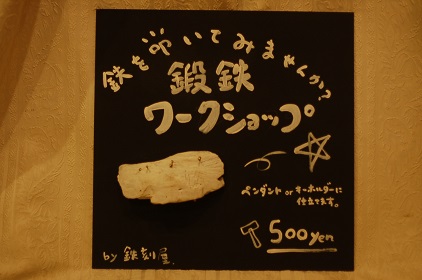 鉄を叩いてみませんか?
鍛鉄
ワークショップ
ペンダント or キーホルダーに
仕立てます。
500yen
by 鉄刻屋